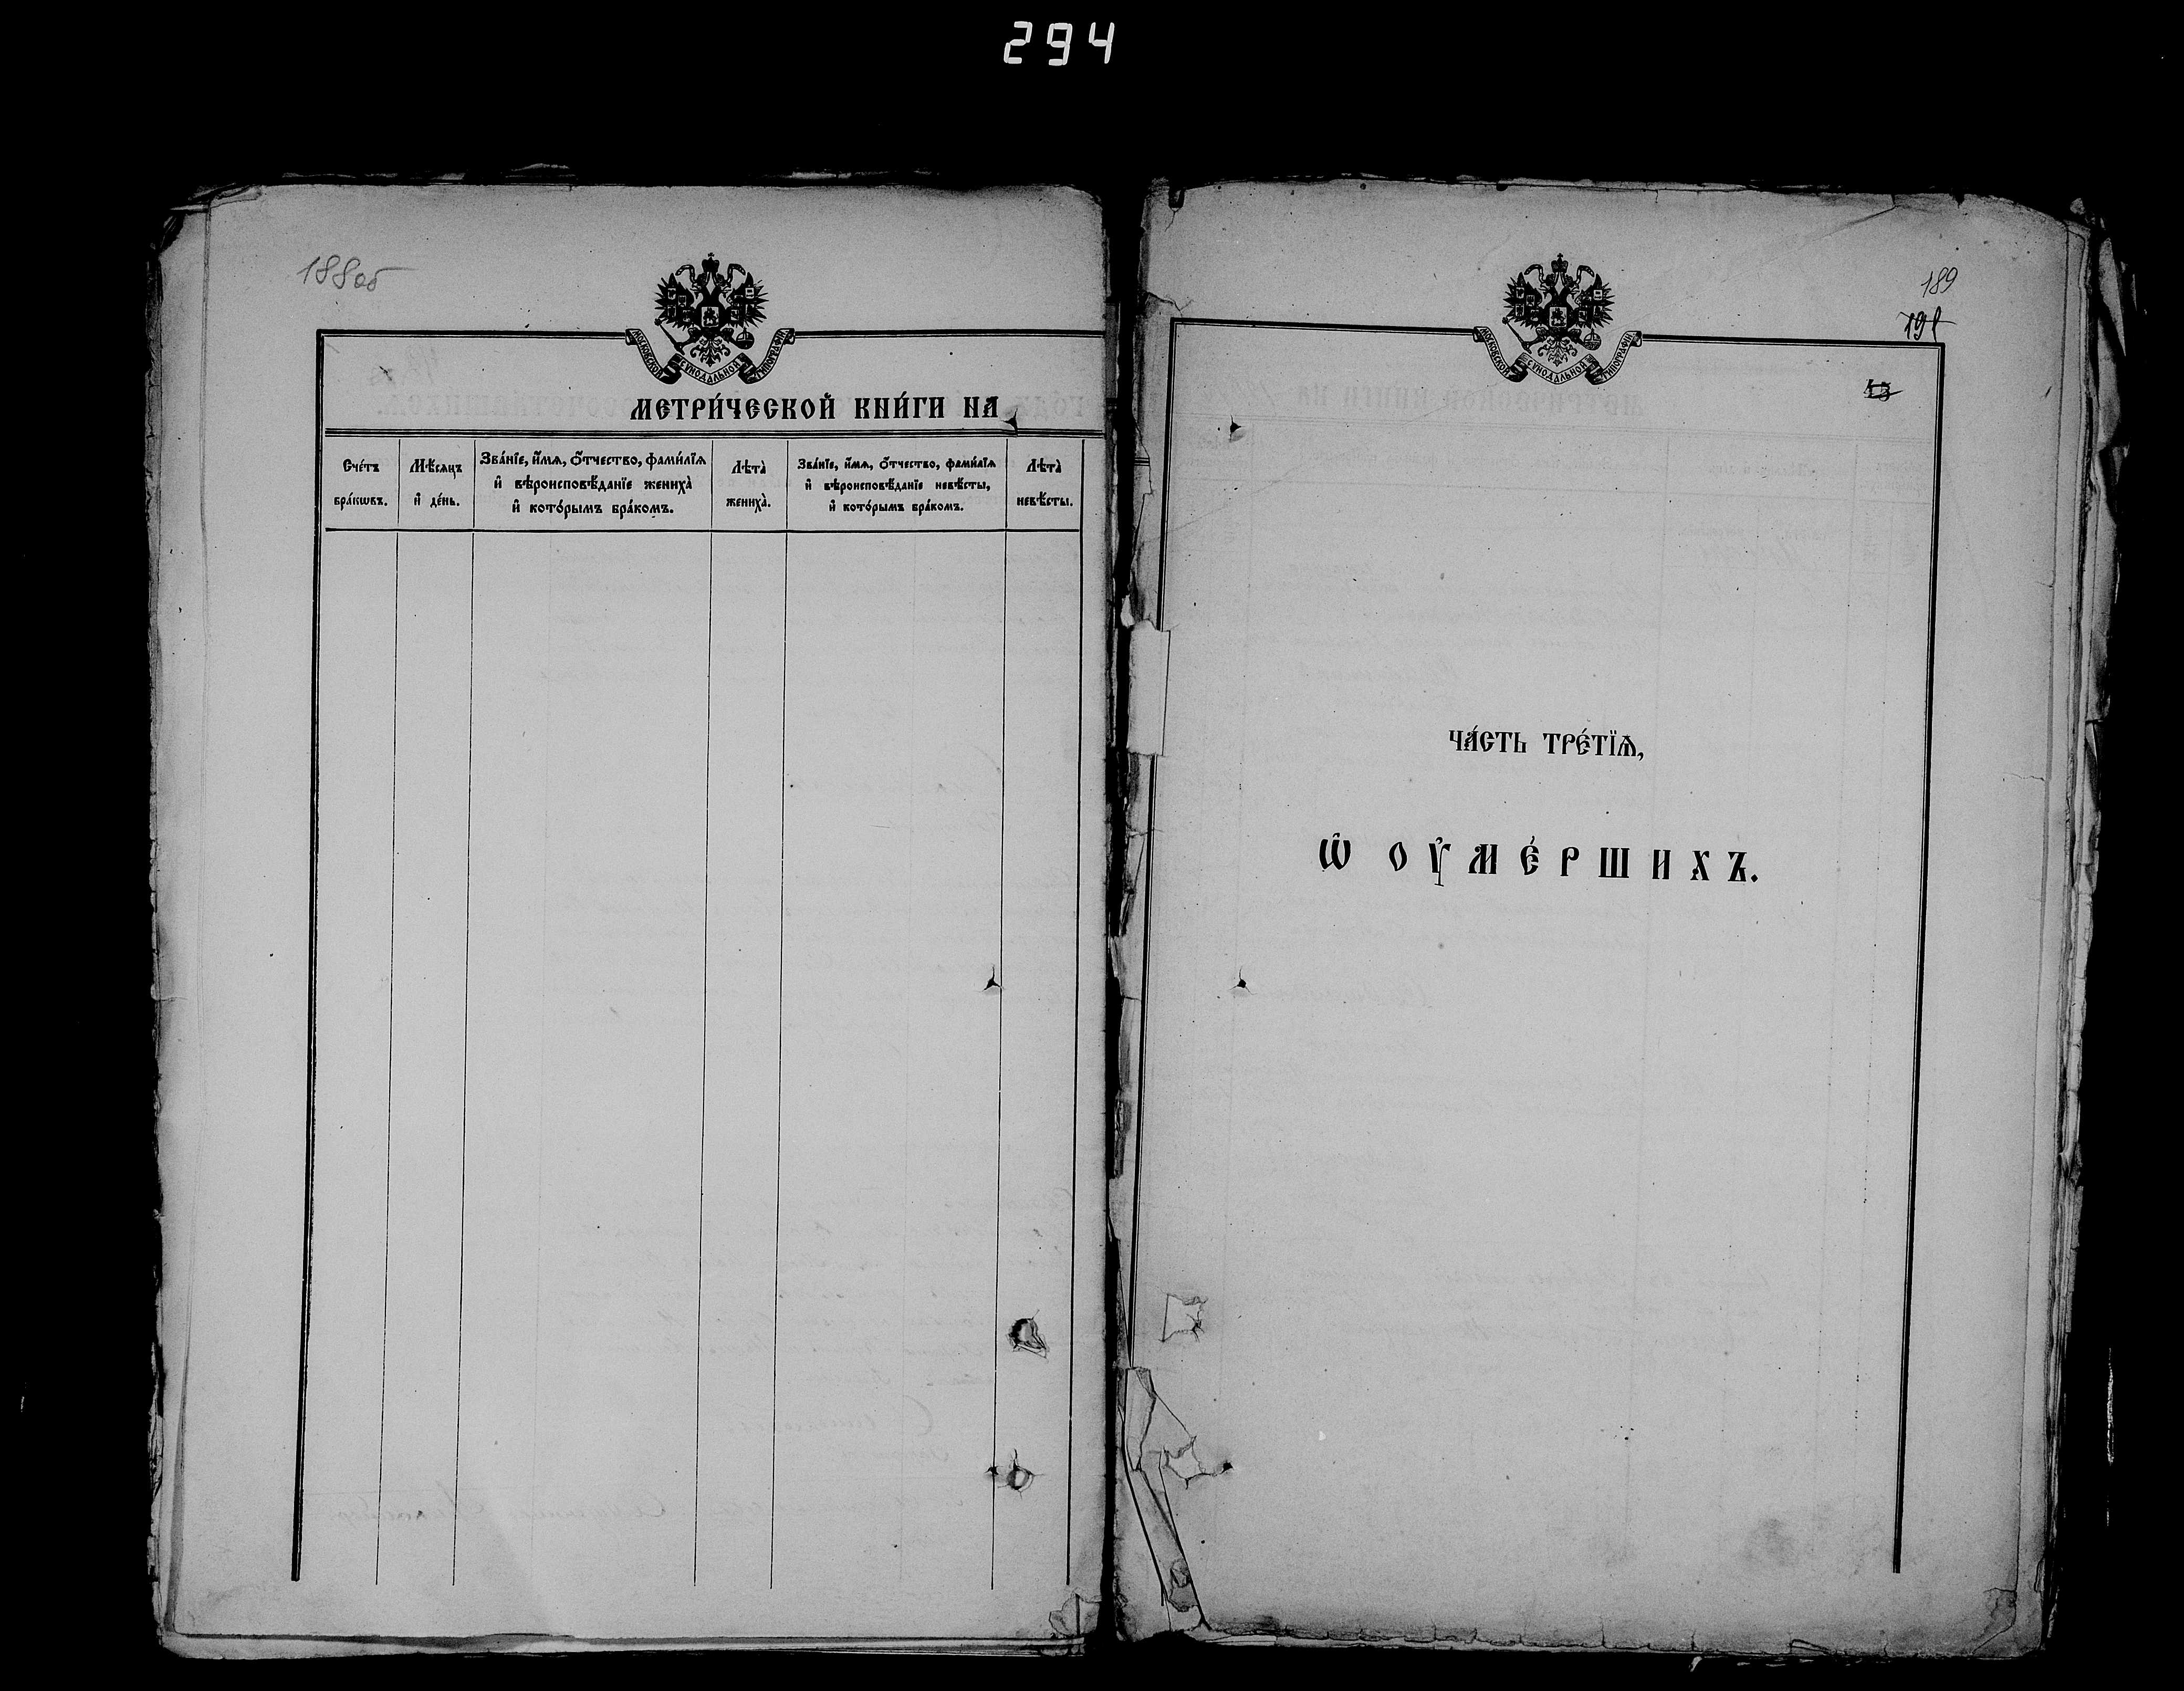 294
188об
МОСКОВСКОЙ СѴНОДАЛЬНОЙ ТИПОГРАФІИ
МЕТРИ́ЧЕСКОЙ КНИ́ГИ НА
Сче́тъ бра́кѡвъ.
Мѣ́сяцъ и҆ де́нь.
Зва́нїе, и҆́мѧ, ѻ҆́тчество, фами́лїѧ и҆ вѣроисповѣ́данїе жениха̀ и҆ кото́рымъ бра́комъ.
Лѣта̀ жениха̀.
Зва́нїе, и҆́мѧ, ѻ҆́тчество, фами́лїѧ и҆ вѣроисповѣ́данїе невѣ́сты, и҆ кото́рымъ бра́комъ.
Лѣта̀ невѣ́сты.
189
191
МОСКОВСКОЙ СѴНОДАЛЬНОЙ ТИПОГРАФІИ
43
ЧА́СТЬ ТРЕ́ТЇѦ,
Ѡ҆ ОУ҆МЕ́РШИХЪ.